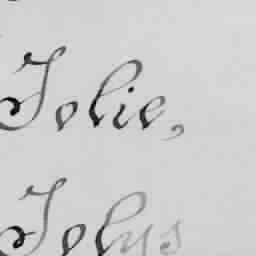 Jolie,
Jolys